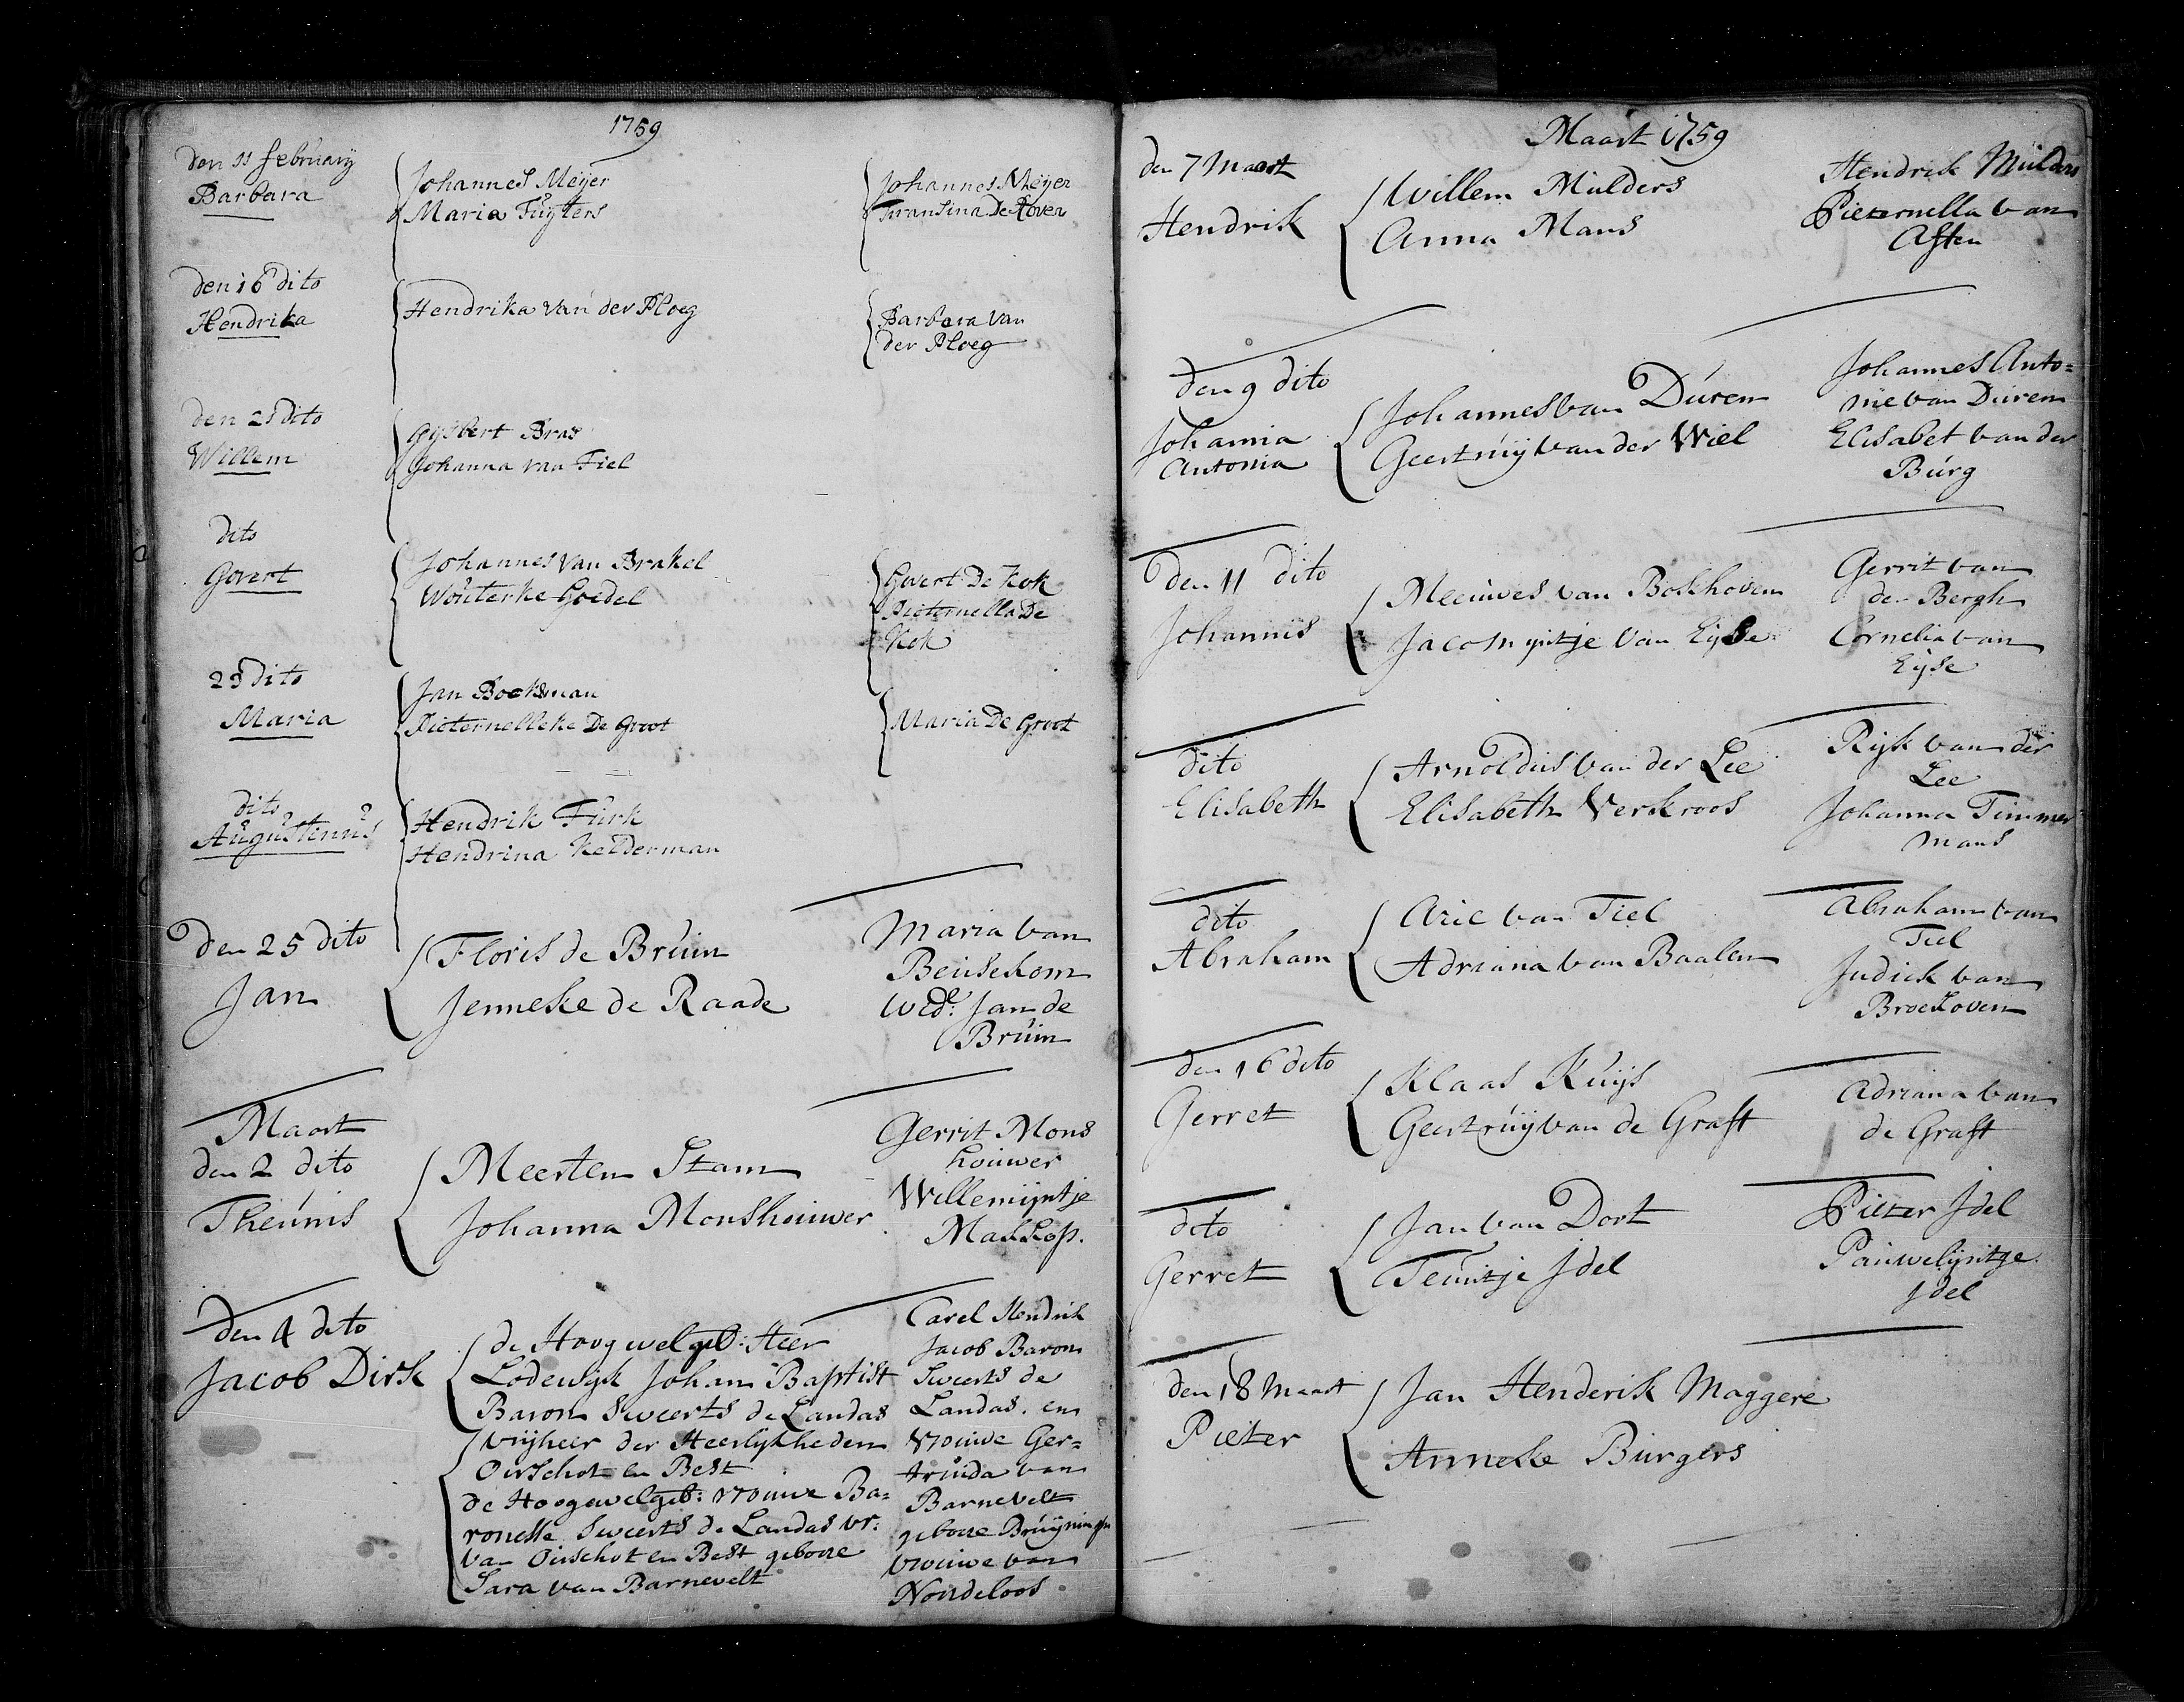 1759
den 11 february
Barbara
Johannes Meijer
Maria Tuyters
Johannes Meijer
Fransina De Rover
den 16 dito
Hendrika
Hendrika van der Ploeg
Barbara van
der Ploeg
den 21 dito
Willem
Gysbert Bras
Johanna van Tiel
dito
Govert
Johannes Van Brakel
Wouterke Goedel
Govert De Kok
Pieternella De
Kok
23 dito
Maria
Jan Boekman
Pieternelleke De Groot
Maria De Groot
dito
Augustinus
Hendrik Turk
Hendrina Kelderman
den 25 dito
Jan
Floris de Bruin
Jenneke de Raade
Maria van
Beusekom
wed:e Jan de
Bruin
Maart
den 2 dito
Theunis
Meerten Stam
Johanna Monshouwer
Gerrit Mons
houwer
Willemijntje
Malkop.
den 4 dito
Jacob Dirk
de Hoogwelgeb: Heer
Lodewijk Johan Baptist
Baron Sweerts de Landas
Vrijheer der Heerlijkheden
Oirschot en Best
de Hoogwelgeb: vrouwe Ba=
ronesse Sweerts de Landas vr:
van Oirschot en Best geboore
Sara van Barnevelt
Carel Hendrik
Jacob Baron
Sweerts de
Landas. en
Vrouwe Ger=
truida van
Barnevelt
geboore
vrouwe van
Nordeloos
Maart 1759
den 7 Maart
Hendrik
Willem Mulders
Anna Mans
Hendrik Mulders
Pieternella van
Asten
den 9 dito
Johanna
Antonia
Johannes van Duren
Geertruij van der Wiel
Johannes Anto=
nie van Duren
Elisabet van der
Burg
den 11 dito
Johannis
Meeuwes van Bokhoven
Jacomyntje van Eyse
Gerrit van
den Bergh
Cornelia van
Eyse
dito
Elisabeth
Arnoldus van der Lee
Elisabeth Verkroos
Rijk van der
Lee
Johanna Timmer
mans
dito
Abraham
Arie van Tiel
Adriana van Baalen
Abraham van
Tiel
Judick van
Broekoven
den 16 dito
Gerret
Klaas Kuijs
Geertruij van de Graft
Adriana van
de Graft
dito
Gerret
Jan van Dort
Teuntje Idel
Pieter Idel
Pauwelijntje
Idel
den 18 Maart
Pieter
Jan Henderik Maggere
Anneke Burgers